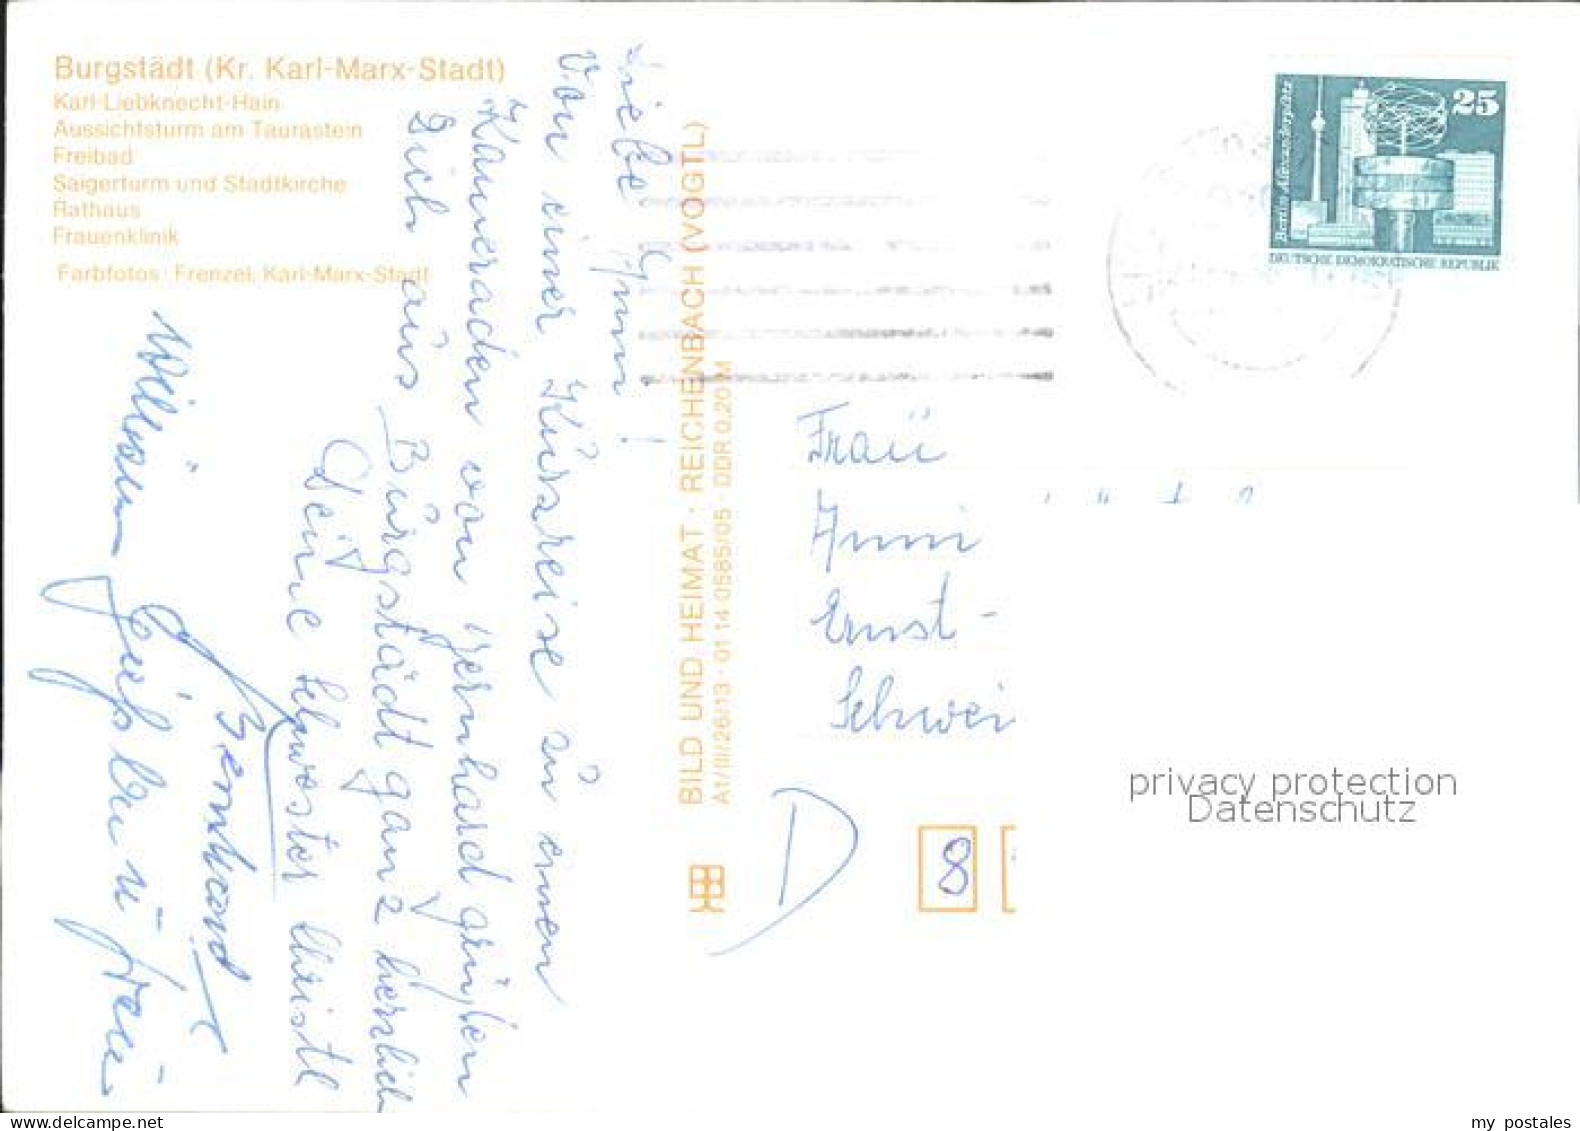 Burgstädt (Kr. Karl-Marx-Stadt)
Karl-Liebknecht-Hain
Aussichtsturm am Taurastein
Freibad
Saigerturm und Stadtkirche
Rathaus
Frauenklinik
Farbfotos: Frenzel, Karl-Marx-Stadt
Liebe Anni!
Von einer Kürzreise zü einen
Kameraden von Bernhard grüßen
Dich aüs Bürgstädt ganz herzlich
Deine Schwester Christl
Bernhard
BILD UND HEIMAT · REICHENBACH (VOGTL)
A1/III/26/13 · 01 14 0585/05 · DDR 0,20 M
25
Berlin, Alexanderplatz
DEUTSCHE DEMOKRATISCHE REPUBLIK
Fraü
Anni
Ernst-
Schwei
D
8
privacy protection
Datenschutz
my postales